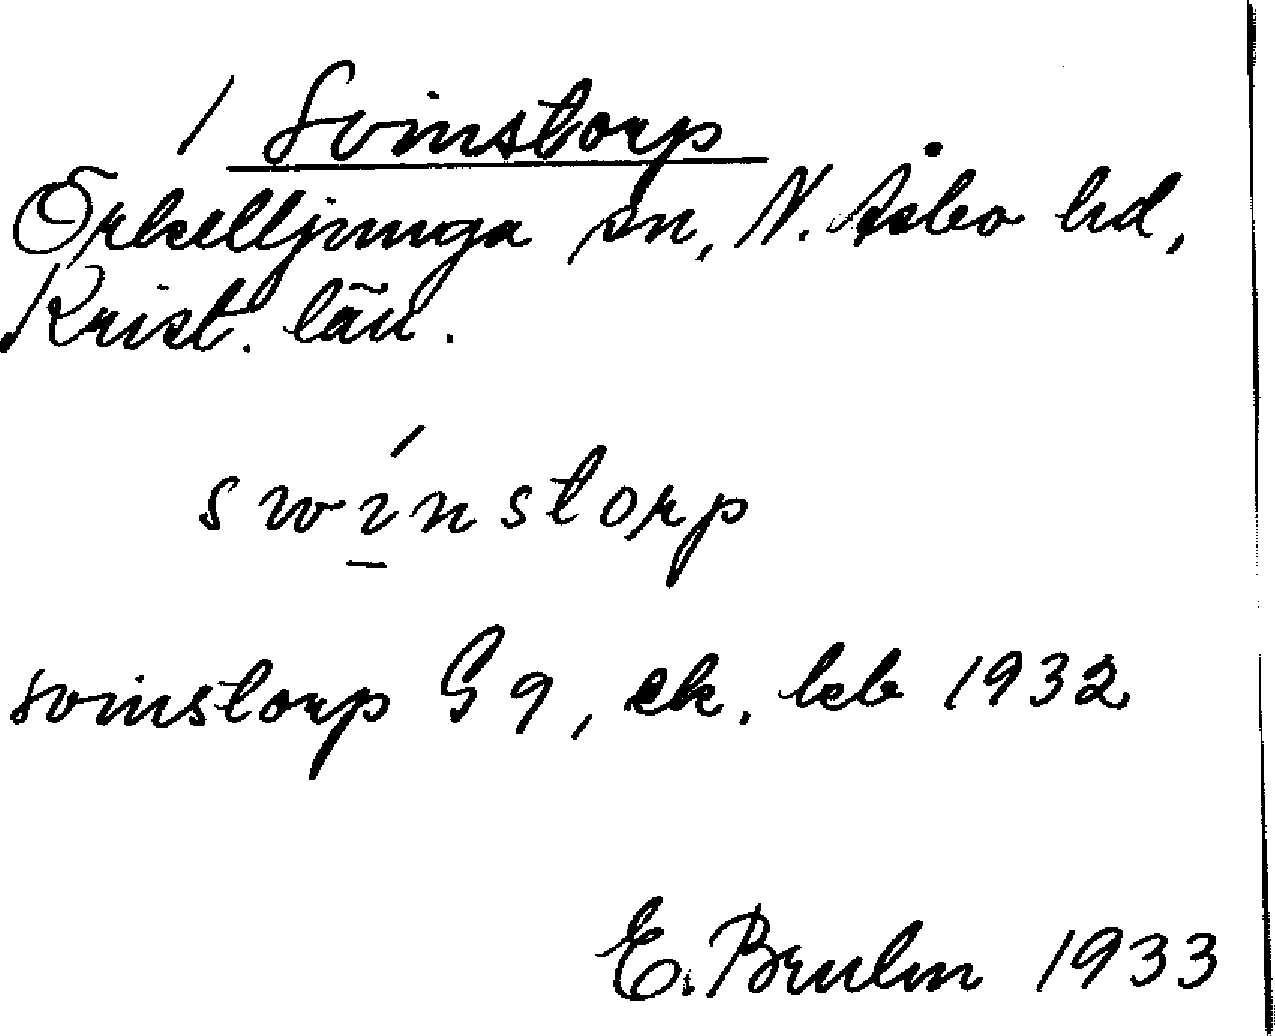 / Svinstorp
Örkelljunga sn, N. Åsbo hd,
Krist. län.
swínstorp
Svinstorp G 9, ek. kb 1932
E. Bruhn 1933